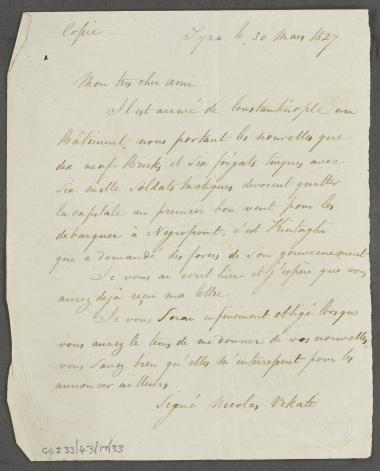 Copie —
Syra le 30 Mars 1827
Mon tres cher ami
Il est arrivé de Constantinople un
Bâtiment, nous portant les nouvelles que
dix neuf Bricks et Six frégats turques avec
Six mille Soldats tactiques devoient quitter
la capitale au premier bon vent pour les
debarquer à Negropont, c'est Kiutaghi
qui a demandé des forces de Son gouvernement
Je vous ai ecrit hier et j'espère que vous
aurez déjà reçu ma lettre.
Je vous Serai infiniment obligé lorsque
vous aurez le tems de me donner de vos nouvelles,
vous Savez bien qu'elles m'interressent pour les
annoncer ailleurs
Signé Nicolas
GQ 233/43/17/33